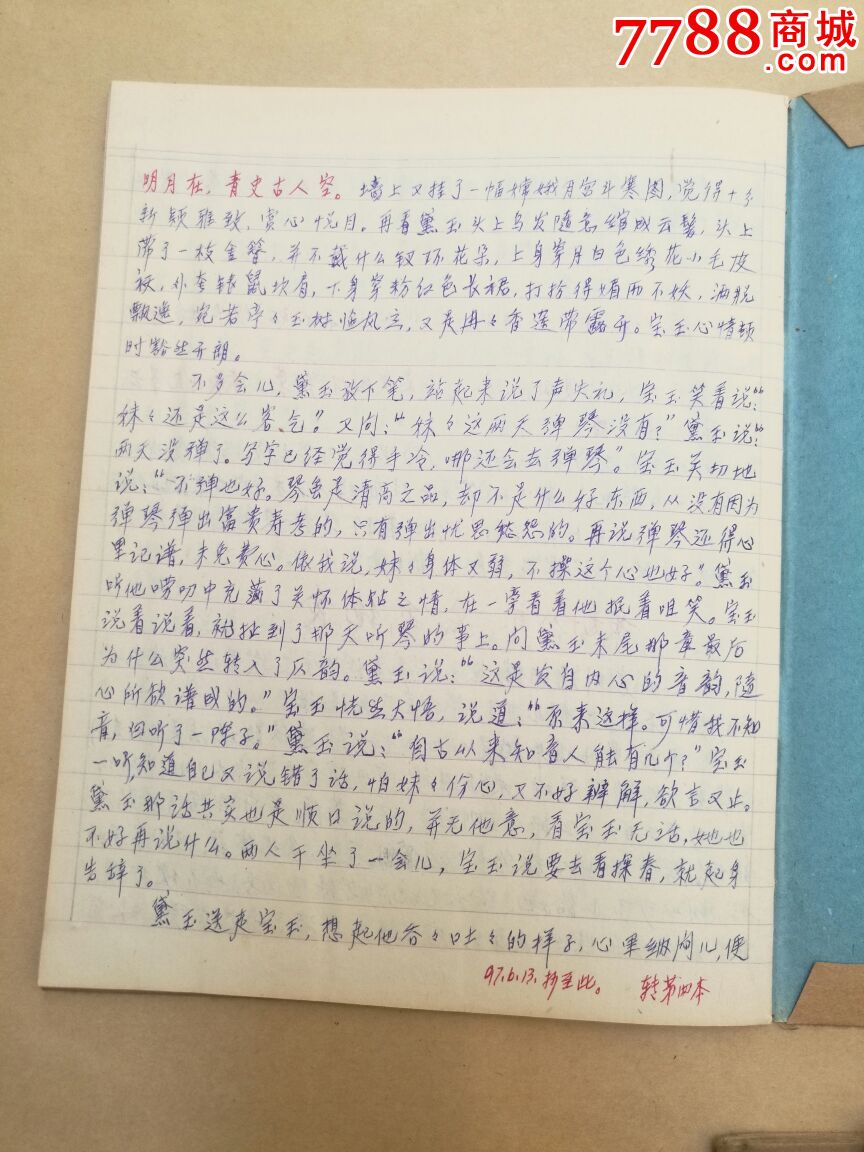 7788商城
.com
明月在，青史古人空。墙上又挂了一幅嫦娥月宫斗寒图，觉得十分
新颖雅致，赏心悦目。再看黛玉头上乌发随意绾成云髻，头上
带了一枝金簪，并不戴什么钗环花朵，上身穿月白色绣花小毛皮
袄，外套银鼠坎肩，下身穿粉红色长裙，打扮得媚而不妖，洒脱
飘逸，宛若亭々玉树临风立，又是冉々香莲带露开。宝玉心情顿
时豁然开朗。
不多会儿，黛玉放下笔，站起来说了声失礼，宝玉笑着说：“
妹々还是这么客气”。又问：“妹々这两天弹琴没有？”黛玉说：“
两天没弹了。写字已经觉得手冷，哪还会去弹琴”。宝玉关切地
说：“不弹也好。琴虽是清高之品，却不是什么好东西，从没有因为
弹琴弹出富贵寿考的，只有弹出忧思愁怨的。再说弹琴还得心
里记谱，未免费心。依我说，妹々身体又弱，不操这个心也好”。黛玉
听他唠叨中充满了关怀体贴之情，在一旁看着他抿着咀笑。宝玉
说着说着，就扯到了那天听琴的事上。问黛玉末尾那章最后
为什么突然转入了仄韵。黛玉说：“这是发自内心的音韵，随
心所欲谱成的。”宝玉恍然大悟，说道：“原来这样。可惜我不知
音，白听了一阵子。”黛玉说：“自古以来知音人能有几个？”宝玉
一听，知道自己又说错了话，怕妹々伤心，又不好辩解，欲言又止。
黛玉那话其实也是顺口说的，并无他意，看宝玉无话，她也
不好再说什么。两人干坐了一会儿，宝玉说要去看探春，就起身
告辞了。
黛玉送走宝玉，想起他吞々吐々的样子，心里纳闷儿，便
97.6.13.抄至此。 转第四本